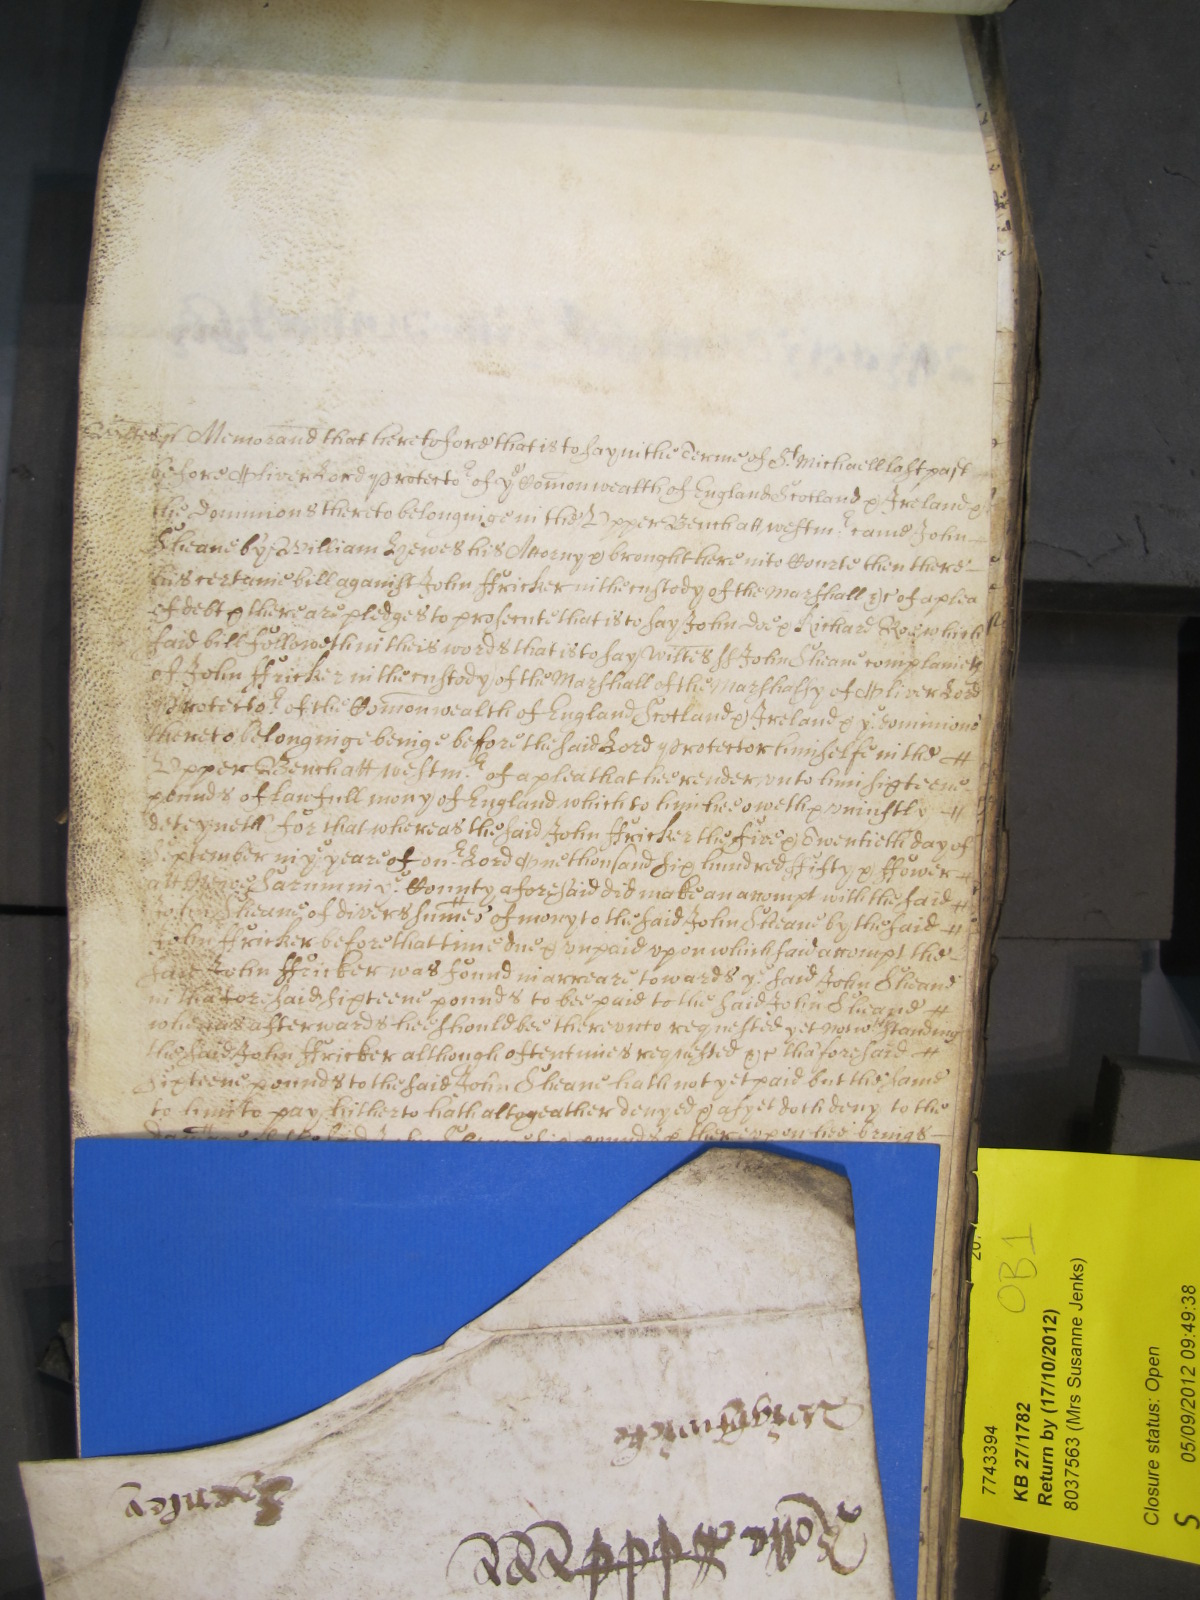 Wiltes ss Memorand that heretofore that is to say in the Terme of St Michaell last past
before Oliver Lord Protector of ye Comonwealth of England Scotland & Ireland &
the Dominions thereto belonginge in the Upper Bench att Westmr came John
Sleane by William Hewes his Attorny & brought here into Courte then there
his certaine bill against John ffricker in the custody of the Marshall &c of a plea
of debt & there are pledges to prosecute that is to say John Doe & Richard Roe which
said bill followeth in theis words that is to say Wiltes ss John Sleane complaineth
of John ffricker in the custody of the Marshall of the Marshalsy of Oliver Lord
Protector of the Comonwealth of England Scotland & Ireland & ye dominions
thereto belonginge beinge before the said Lord Protector himselfe in the
Upper Bench att Westmr of a plea that hee render unto him sixteene
pounds of lawfull mony of England which to him hee oweth & uniustly
deteyneth for that whereas the said John ffricker the five & Twentieth day of
September in ye yeare of our Lord One thousand six hundred ffifty & ffower
att New Sarum in ye County aforesaid did make an accompt with the said
John Sleane of divers sumes of mony to the said John Sleane by the said
John ffricker before that time due & unpaid upon which said accompt the
said John ffricker was found in arreare towards ye said John Sleane
in tha foresaid sixteene pounds to bee paid to the said John Sleane
whenas afterwards hee should bee thereunto requested yet notwthstanding
the said John ffricker although oftentimes requested &c tha foresaid
sixteene pounds to the said John Sleane hath not yet paid but the same
to him to pay hitherto hath altogeather denyed & as yet doth deny to the
pounds & thereupon hee brings
Rotla
7743394 OB1
KB 27/1782
Return by (17/10/2012)
8037563 (Mrs Susanne Jenks)
Closure status: Open
05/09/2012 09:49:38
S